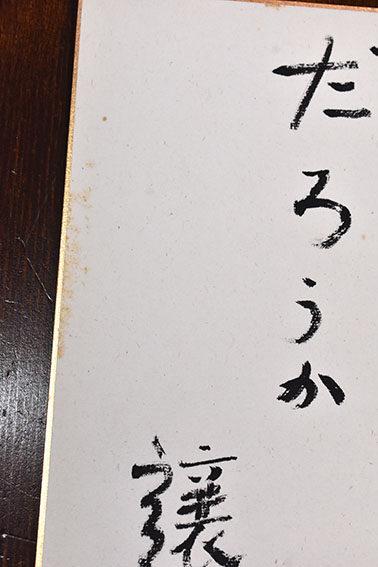 だろうか
譲